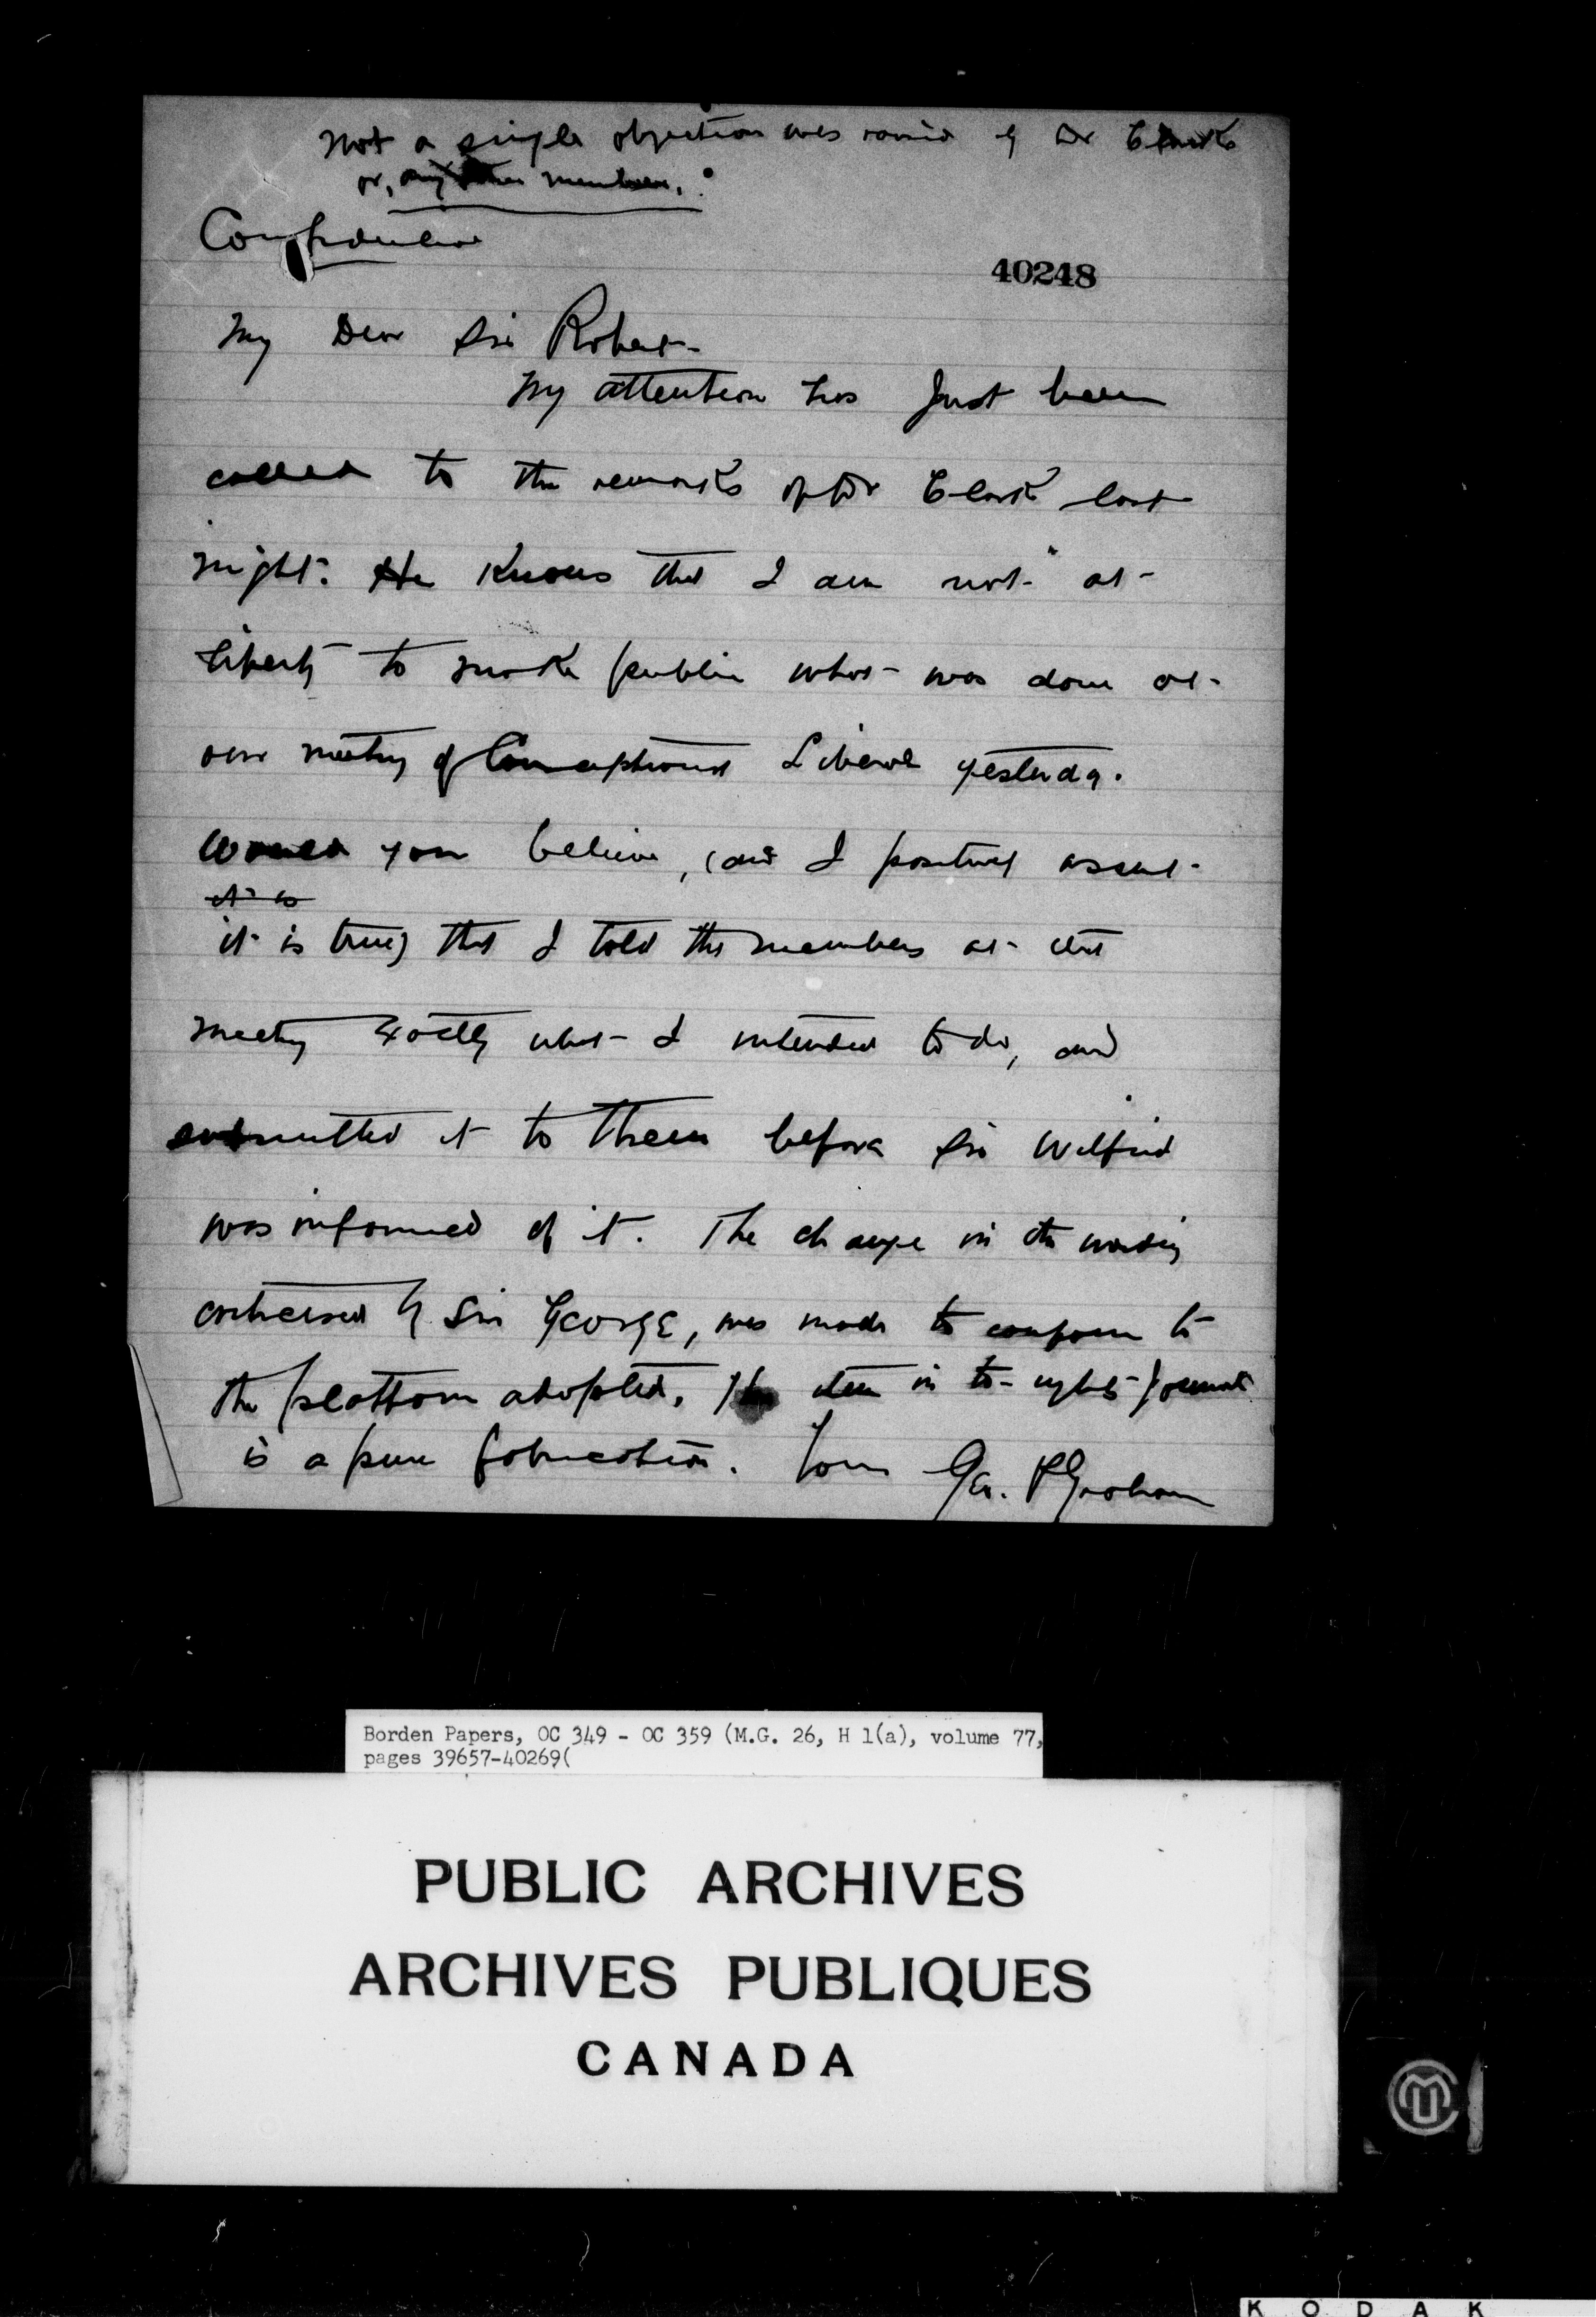 Not a single objection was raised by Dr Clark
or, any other members.
Confidential
40248
My Dear Sir Robert-
My attention has just been
called to the remarks of Dr Clark last
night. He knows that I am not at-
liberty to make public what was done at-
our meeting of Conscriptionist Liberals yesterday.
Would you believe, (and I positively assert-
it is
it is true) that I told the members at that
meeting exactly what I intended to do, and
submitted it to them before Sir Wilfrid
was informed of it. The change in the wording
criticised by Sir George, was made to conform to
the platform adopted. The item in to-nights Journal
is a pure fabrication. Yours Geo. P Graham
Borden Papers, OC 349 - OC 359 (M.G. 26, H 1(a), volume 77,
pages 39657-40269(
PUBLIC ARCHIVES
ARCHIVES PUBLIQUES
CANADA
KODAK